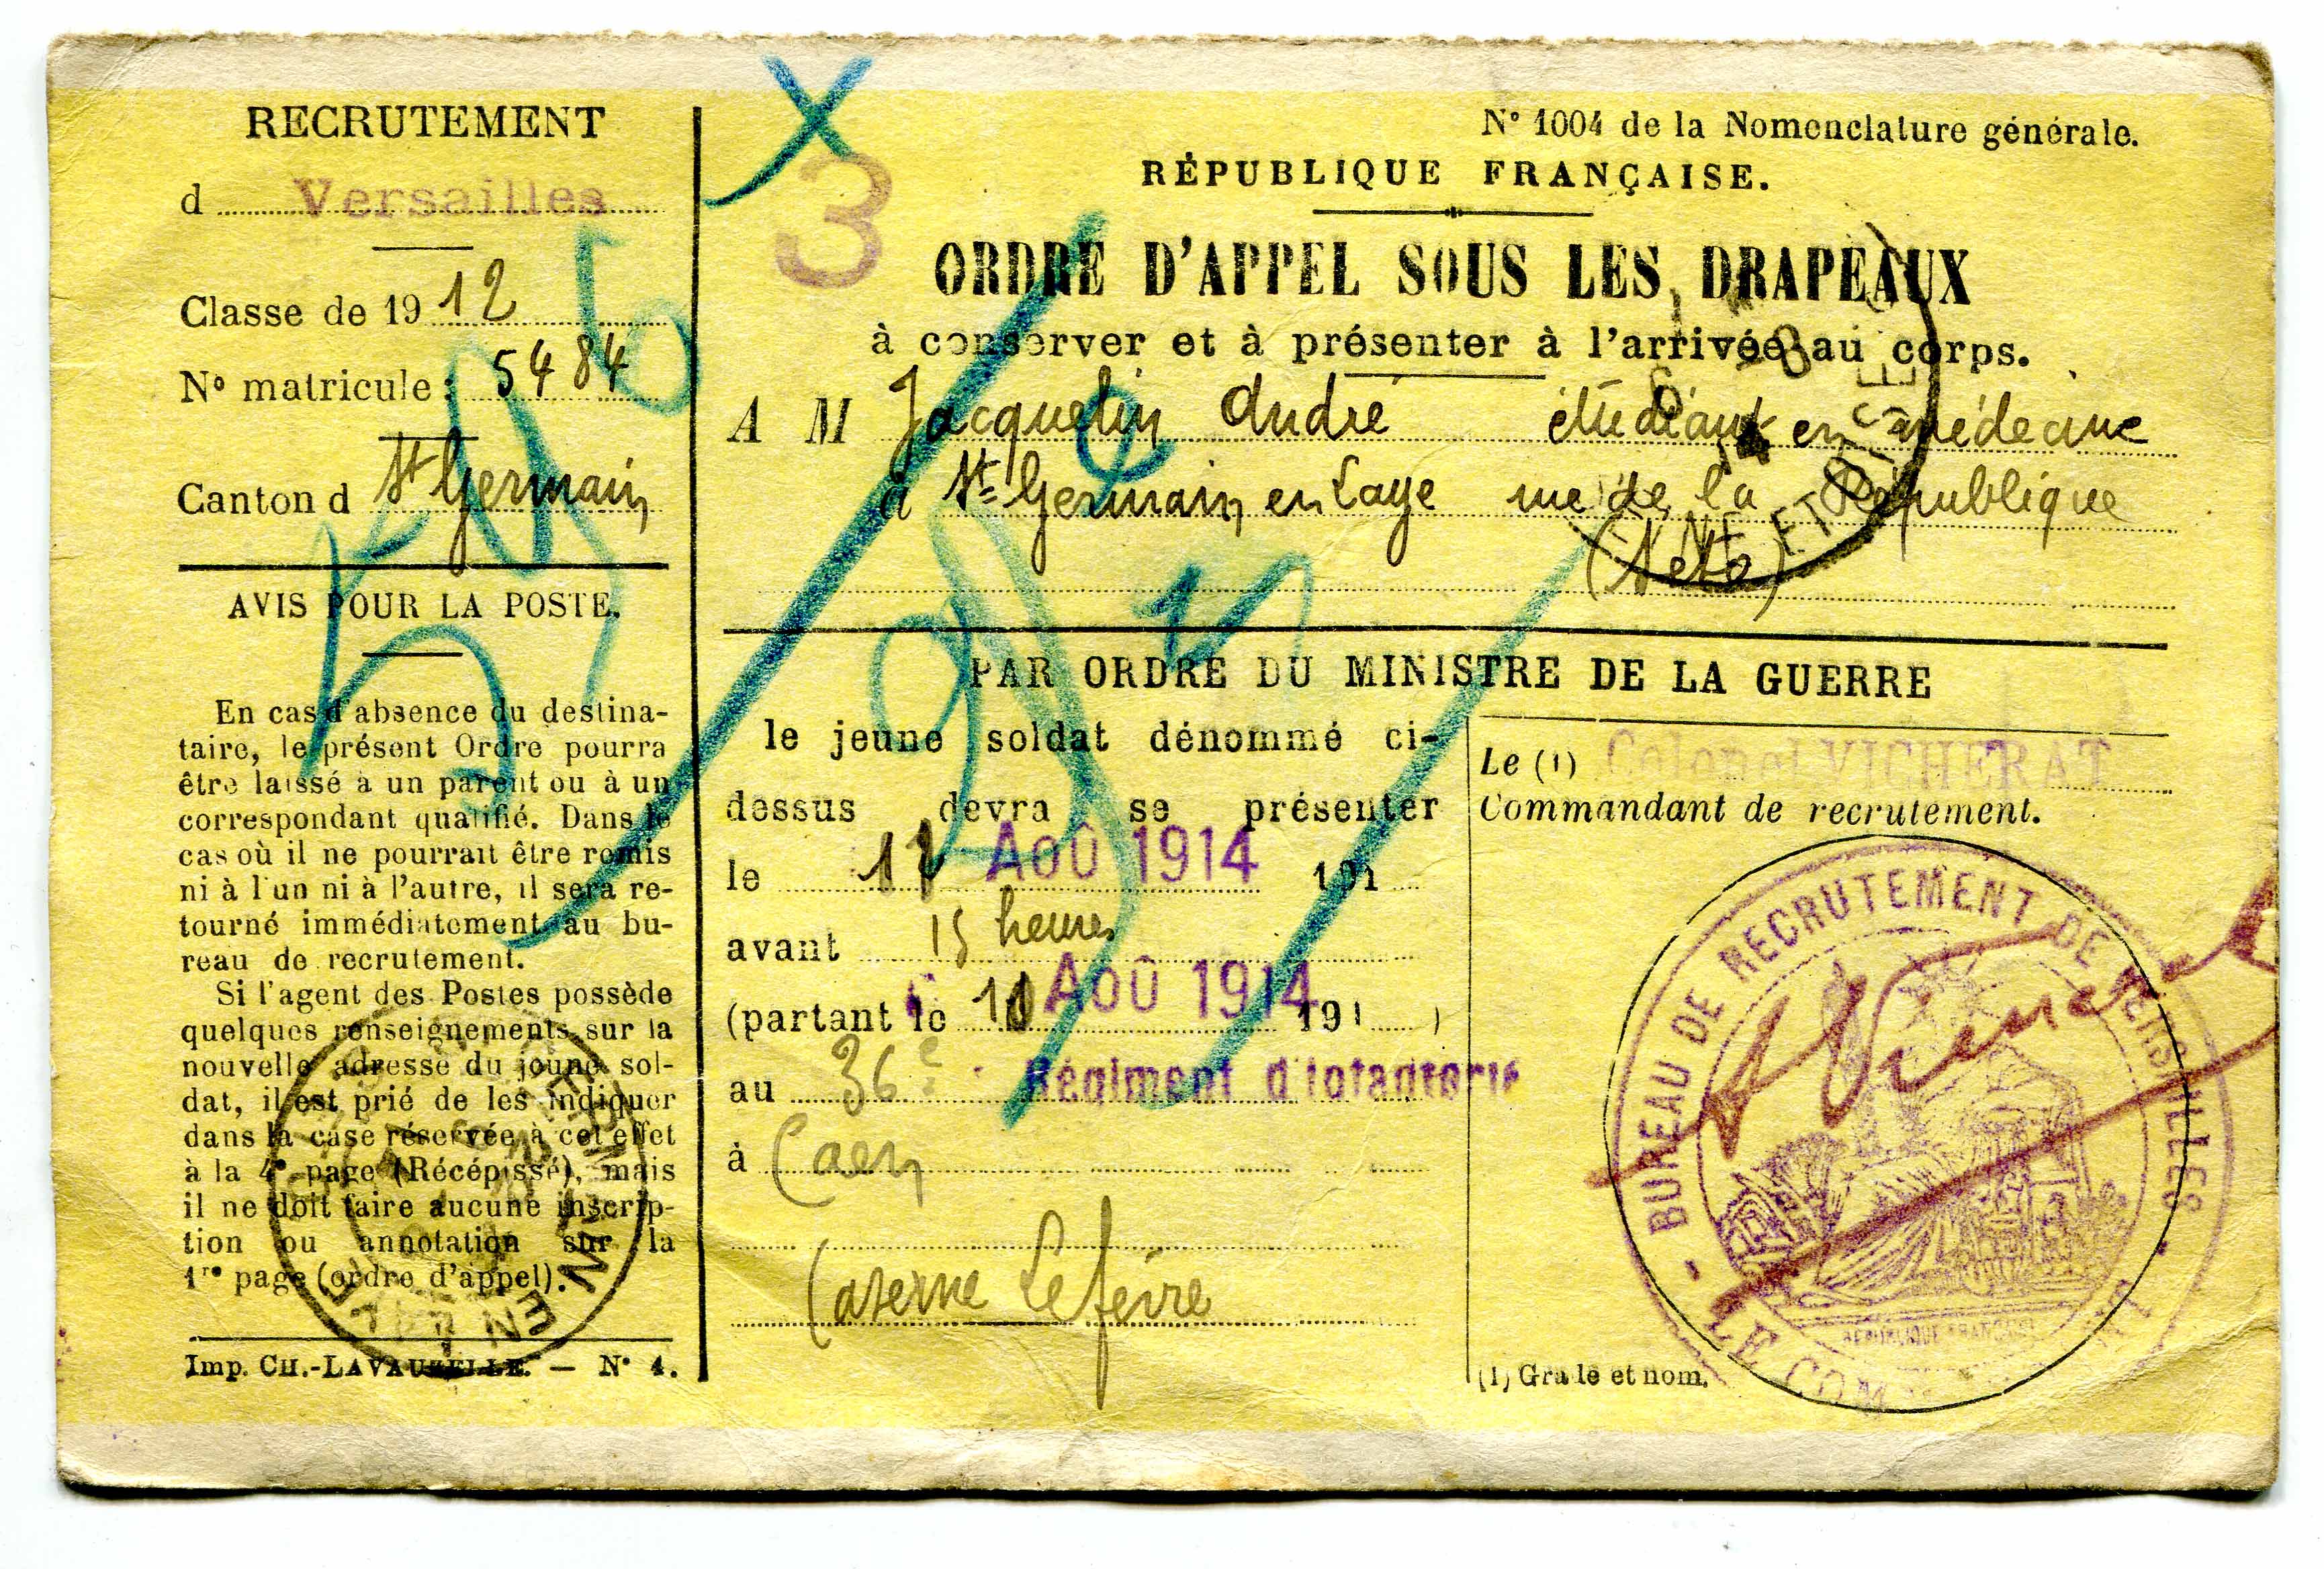 RECRUTEMENT
d Versailles
Classe de 1912
N° matricule : 5484
Canton d St Germain
AVIS POUR LA POSTE.
En cas d'absence du destina-
taire, le présent Ordre pourra
être laissé à un parent ou à un
correspondant qualifié. Dans le
cas où il ne pourrait être remis
ni à l'un ni à l'autre, il sera re-
tourné immédiatement au bu-
reau de recrutement.
Si l'agent des Postes possède
quelques renseignements sur la
nouvelle adresse du jeune sol-
dat, il est prié de les indiquer
dans la case réservée à cet effet
à la 4e page (Récépissé), mais
il ne doit faire aucune inscrip-
tion ou annotation sur la
1re page (ordre d'appel).
Imp. CH.-LAVAUZELLE. — N° 4.
3
N° 1004 de la Nomenclature générale.
RÉPUBLIQUE FRANÇAISE.
ORDRE D'APPEL SOUS LES DRAPEAUX
à conserver et à présenter à l'arrivée au corps.
A M Jacquelin André étudiant en médecine
à St Germain en Laye rue de la République
PAR ORDRE DU MINISTRE DE LA GUERRE
le jeune soldat dénommé ci-
dessus devra se présenter
le AOÛ 1914 191
avant 15 heures
(partant le AOÛ 1914 191 )
au 36e Régiment d'Infanterie
à Caen
Caserne Lefèvre
Le (1) Colonel VICHERAT
Commandant de recrutement.
BUREAU DE RECRUTEMENT DE VERSAILLES
RÉPUBLIQUE FRANÇAISE
(1) Grade et nom.